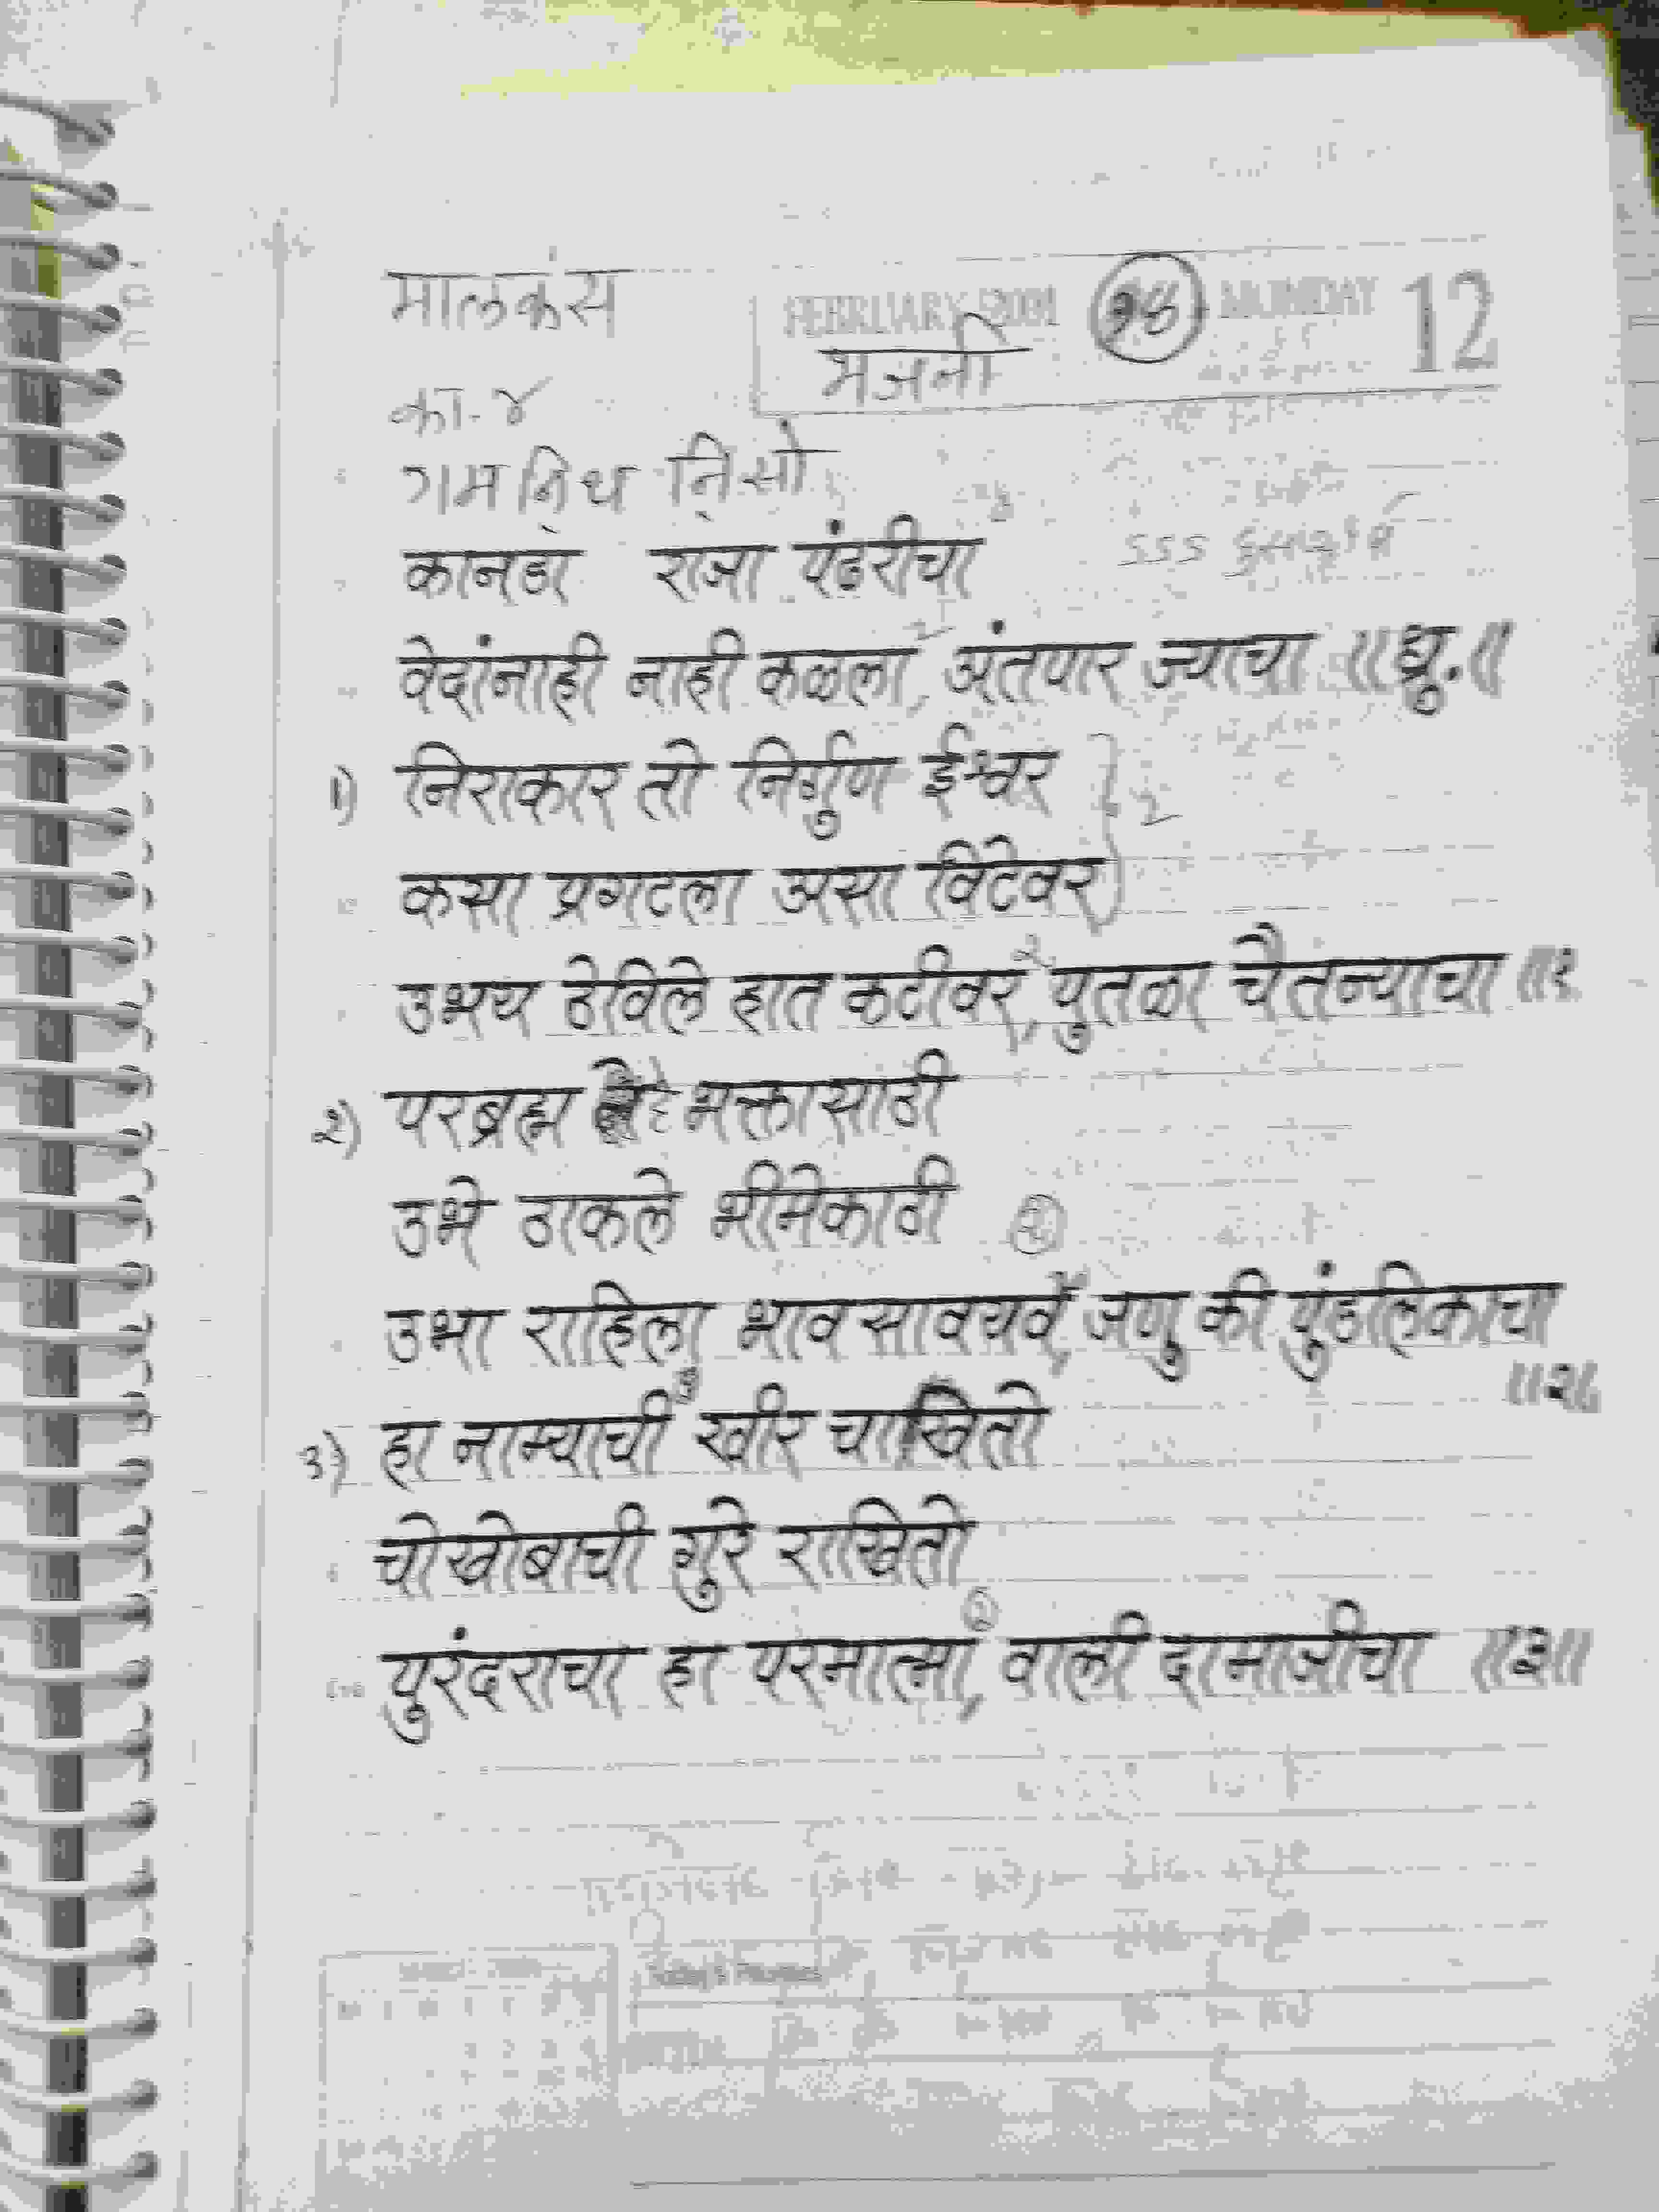 मालकंस
FEBRUARY 2001 MONDAY 12
भजनी
का-४
गम निध नि सां
कानडा राजा पंढरीचा
वेदांनाही नाही कळला, अंतपार ज्याचा ॥ध्रु.॥
१) निराकार तो निर्गुण ईश्वर
कसा प्रगटला असा विटेवर
उभय ठेविले हात कटीवर, पुतळा चैतन्याचा ॥१
२) परब्रह्म हे भक्तासाठी
उभे ठाकले भीमेकाठी
उभा राहिला भाव सावयव, जणु की पुंडलिकाचा
॥२॥
३) हा नाम्याची खीर चाखितो
चोखोबाची गुरे राखितो
पुरंदराचा हा परमात्मा, वाली दामाजीचा ॥३॥